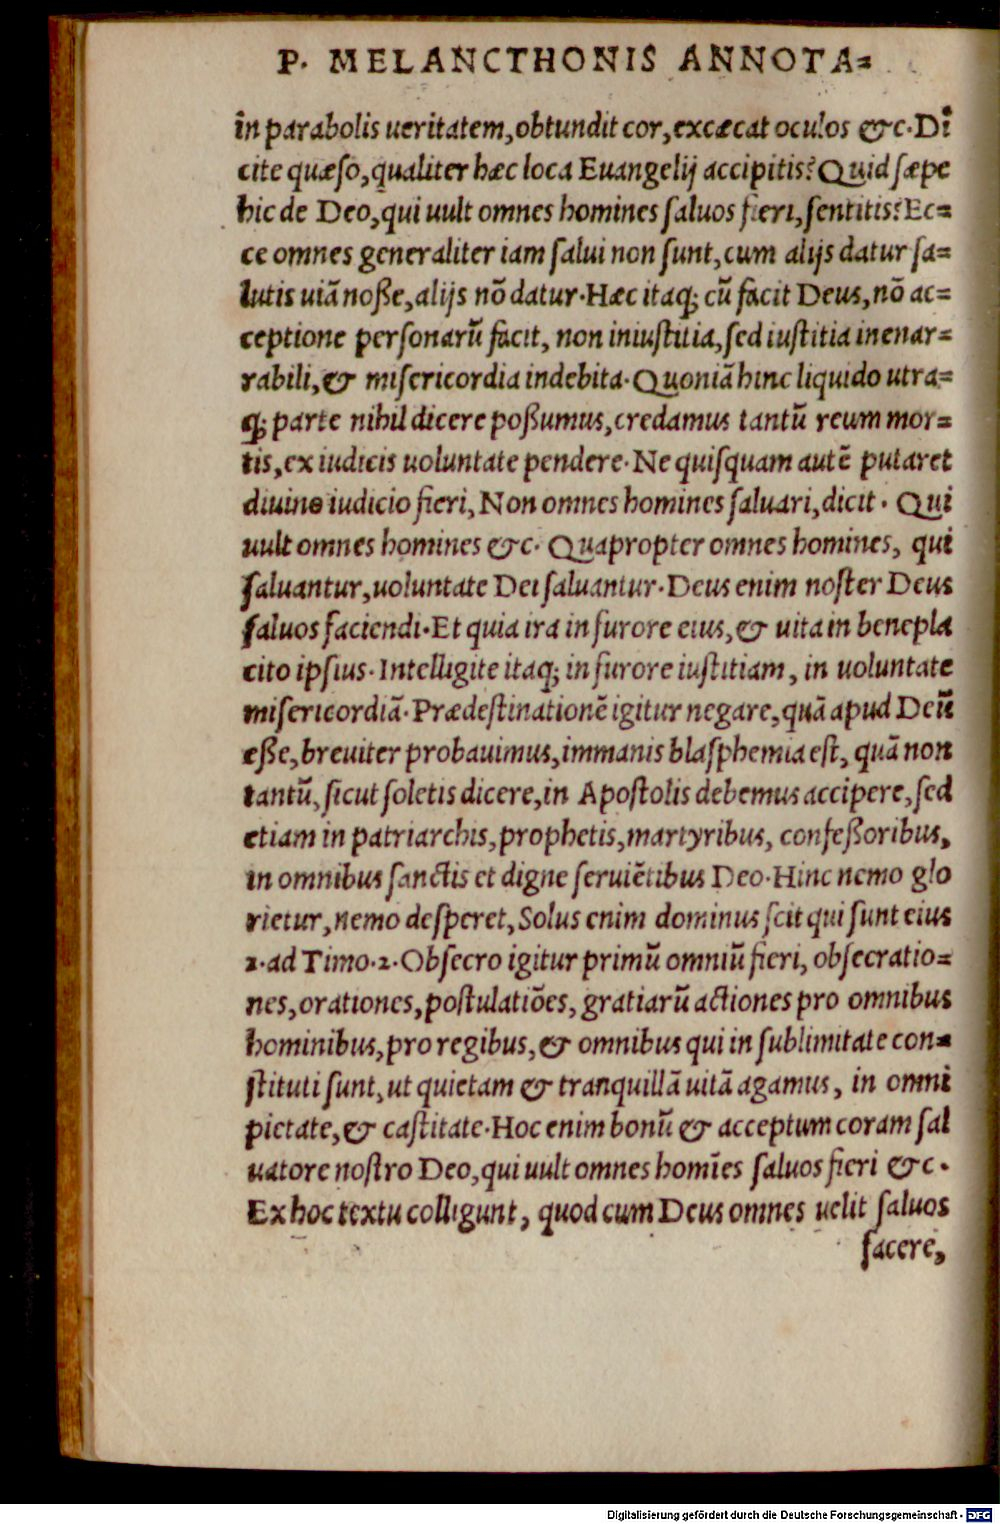 P. MELANCTHONIS ANNOTA=
in parabolis ueritatem, obtundit cor, excæcat oculos &c. Di
cite quæso, qualiter hæc loca Euangelij accipitis? Quid sæpe
hic de Deo, qui uult omnes homines saluos fieri, sentitis? Ec=
ce omnes generaliter iam salui non sunt, cum alijs datur sa=
lutis uiā noße, alijs nō datur. Hæc itaq; cū facit Deus, nō ac=
ceptione personarū facit, non iniustitia, sed iustitia inenar=
rabili, & misericordia indebita. Quoniā hinc liquido utra=
q; parte nihil dicere poßumus, credamus tantū reum mor=
tis, ex iudicis uoluntate pendere. Ne quisquam autē putaret
diuino iudicio fieri, Non omnes homines saluari, dicit. Qui
uult omnes homines &c. Quapropter omnes homines, qui
saluantur, uoluntate Dei saluantur. Deus enim noster Deus
saluos faciendi. Et quia ira in furore eius, & uita in benepla
cito ipsius. Intelligite itaq; in furore iustitiam, in uoluntate
misericordiā. Prædestinationē igitur negare, quā apud Deū
eße, breuiter probauimus, immanis blasphemia est, quā non
tantū, sicut soletis dicere, in Apostolis debemus accipere, sed
etiam in patriarchis, prophetis, martyribus, confeßoribus,
in omnibus sanctis et digne seruiētibus Deo. Hinc nemo glo
rietur, nemo desperet, Solus enim dominus scit qui sunt eius
1. ad Timo. 2. Obsecro igitur primū omniū fieri, obsecratio=
nes, orationes, postulatiōes, gratiarū actiones pro omnibus
hominibus, pro regibus, & omnibus qui in sublimitate con=
stituti sunt, ut quietam & tranquillā uitā agamus, in omni
pietate, & castitate. Hoc enim bonū & acceptum coram sal
uatore nostro Deo, qui uult omnes homīes saluos fieri &c.
Ex hoc textu colligunt, quod cum Deus omnes uelit saluos
facere,
Digitalisierung gefördert durch die Deutsche Forschungsgemeinschaft - DFG